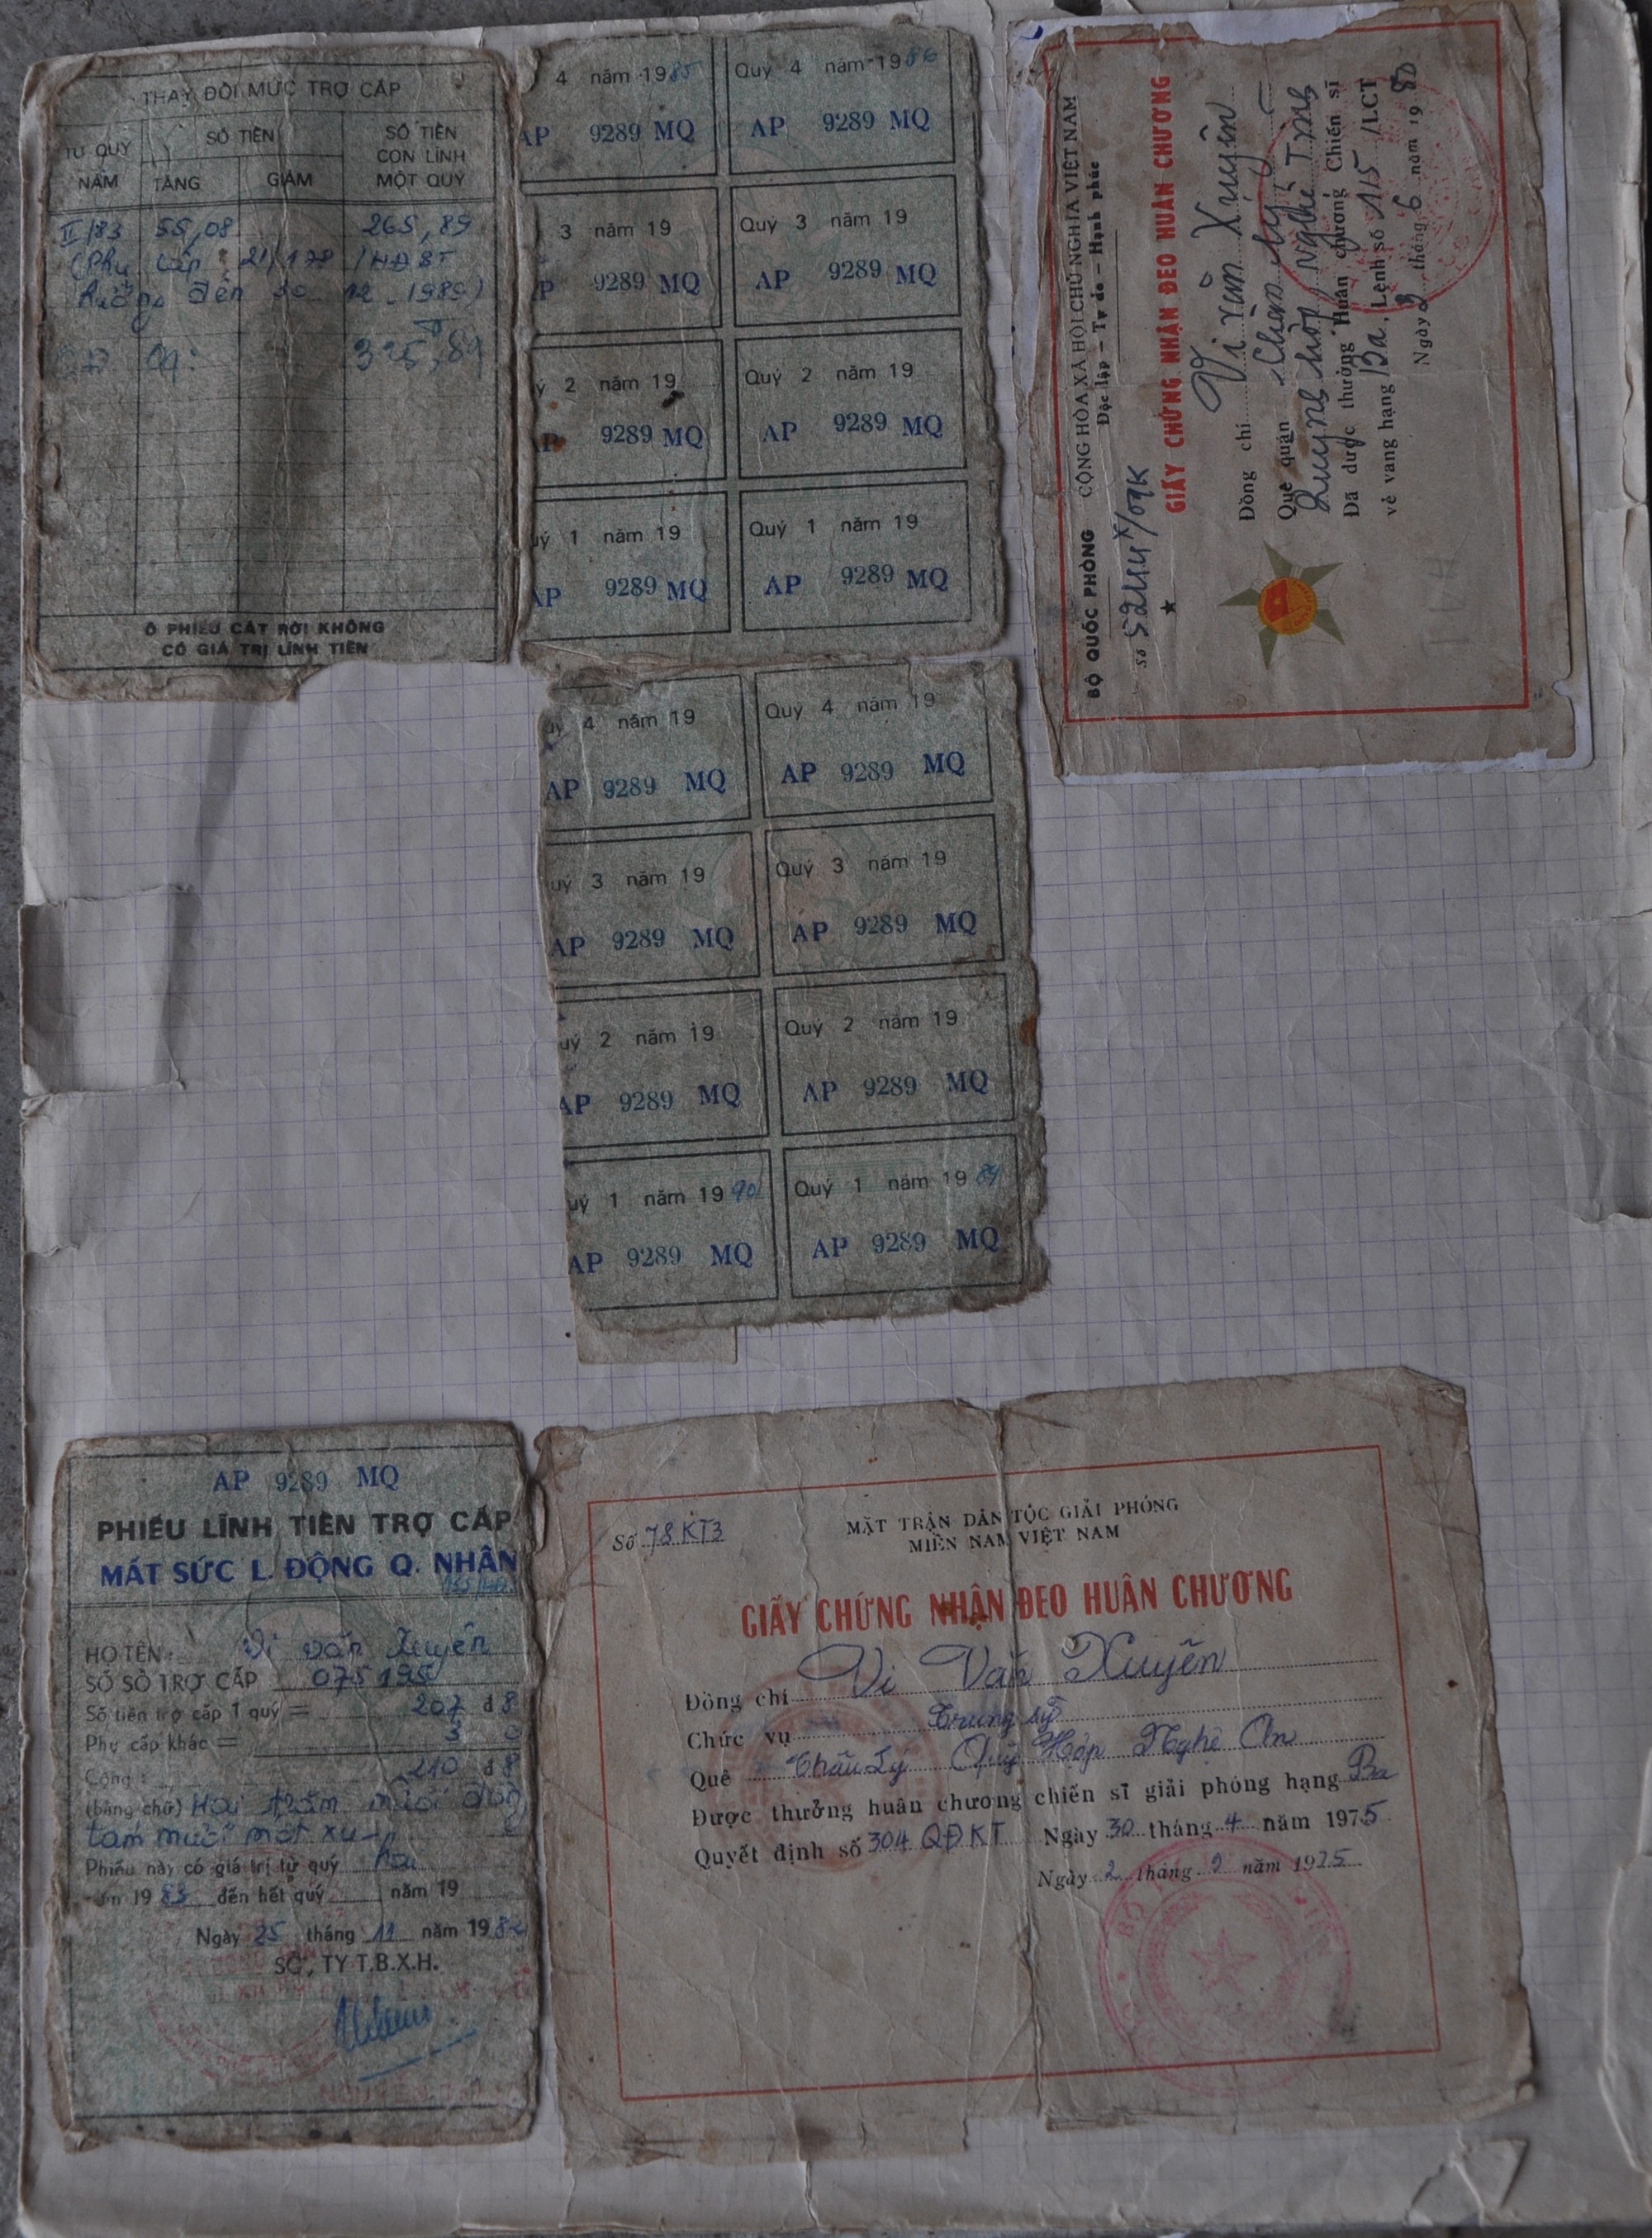 THAY ĐỔI MỨC TRỢ CẤP
TỪ QUÝ NĂM
SỐ TIỀN
TĂNG
GIẢM
SỐ TIỀN CÒN LĨNH MỘT QUÝ
II/83 55,08 265,89
(Phụ cấp 21/178/HĐBT
đến 30-12-1985)
325,89
Ô PHIẾU CẮT RỜI KHÔNG
CÓ GIÁ TRỊ LĨNH TIỀN
4 năm 1985
AP 9289 MQ
Quý 4 năm 1986
AP 9289 MQ
3 năm 19
9289 MQ
Quý 3 năm 19
AP 9289 MQ
2 năm 19
9289 MQ
Quý 2 năm 19
AP 9289 MQ
1 năm 19
AP 9289 MQ
Quý 1 năm 19
AP 9289 MQ
BỘ QUỐC PHÒNG
CỘNG HÒA XÃ HỘI CHỦ NGHĨA VIỆT NAM
Độc lập – Tự do – Hạnh phúc
Số
GIẤY CHỨNG NHẬN ĐEO HUÂN CHƯƠNG
Đồng chí Vi Văn Xuyên
Quê quán Châu Lý
Quỳnh hợp, Nghệ Tĩnh
Đã được thưởng Huân chương Chiến sĩ
vẻ vang hạng Ba, Lệnh số 115 /LCT
Ngày 3 tháng 6 năm 1980
4 năm 19
AP 9289 MQ
Quý 4 năm 19
AP 9289 MQ
3 năm 19
AP 9289 MQ
Quý 3 năm 19
AP 9289 MQ
2 năm 19
AP 9289 MQ
Quý 2 năm 19
AP 9289 MQ
1 năm 1990
AP 9289 MQ
Quý 1 năm 1989
AP 9289 MQ
AP 9289 MQ
PHIẾU LĨNH TIỀN TRỢ CẤP
MẤT SỨC L. ĐỘNG Q. NHÂN
HỌ TÊN: Vi văn Xuyên
SỐ SỔ TRỢ CẤP 075195
Số tiền trợ cấp 1 quý = 207 đ 8
Phụ cấp khác = 3
Cộng: 210 đ 8
(bằng chữ) Hai trăm mười đồng
tám mươi mốt xu
Phiếu này có giá trị từ quý hai
năm 1983 đến hết quý năm 19
Ngày 25 tháng 11 năm 1982
SỞ, TY T.B.X.H.
Số 78 KT3
MẶT TRẬN DÂN TỘC GIẢI PHÓNG
MIỀN NAM VIỆT NAM
GIẤY CHỨNG NHẬN ĐEO HUÂN CHƯƠNG
Đồng chí Vi Văn Xuyên
Chức vụ Trung sỹ
Quê Châu Lý Quỳ Hợp Nghệ An
Được thưởng huân chương chiến sĩ giải phóng hạng Ba
Quyết định số 304 QĐKT Ngày 30 tháng 4 năm 1975
Ngày 2 tháng 9 năm 1975